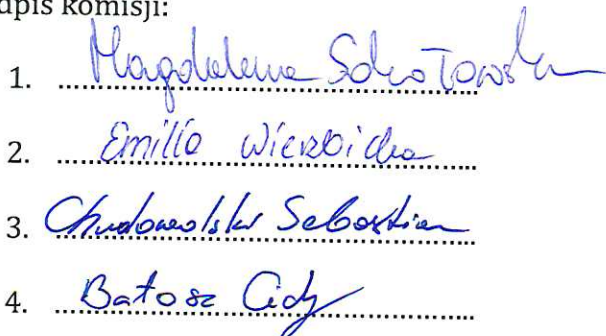 dpis komisji:
1. Magdalena Sokołowska
2. Emilia Wierzbicka
3. Sebastian
4. Batosz Cidy